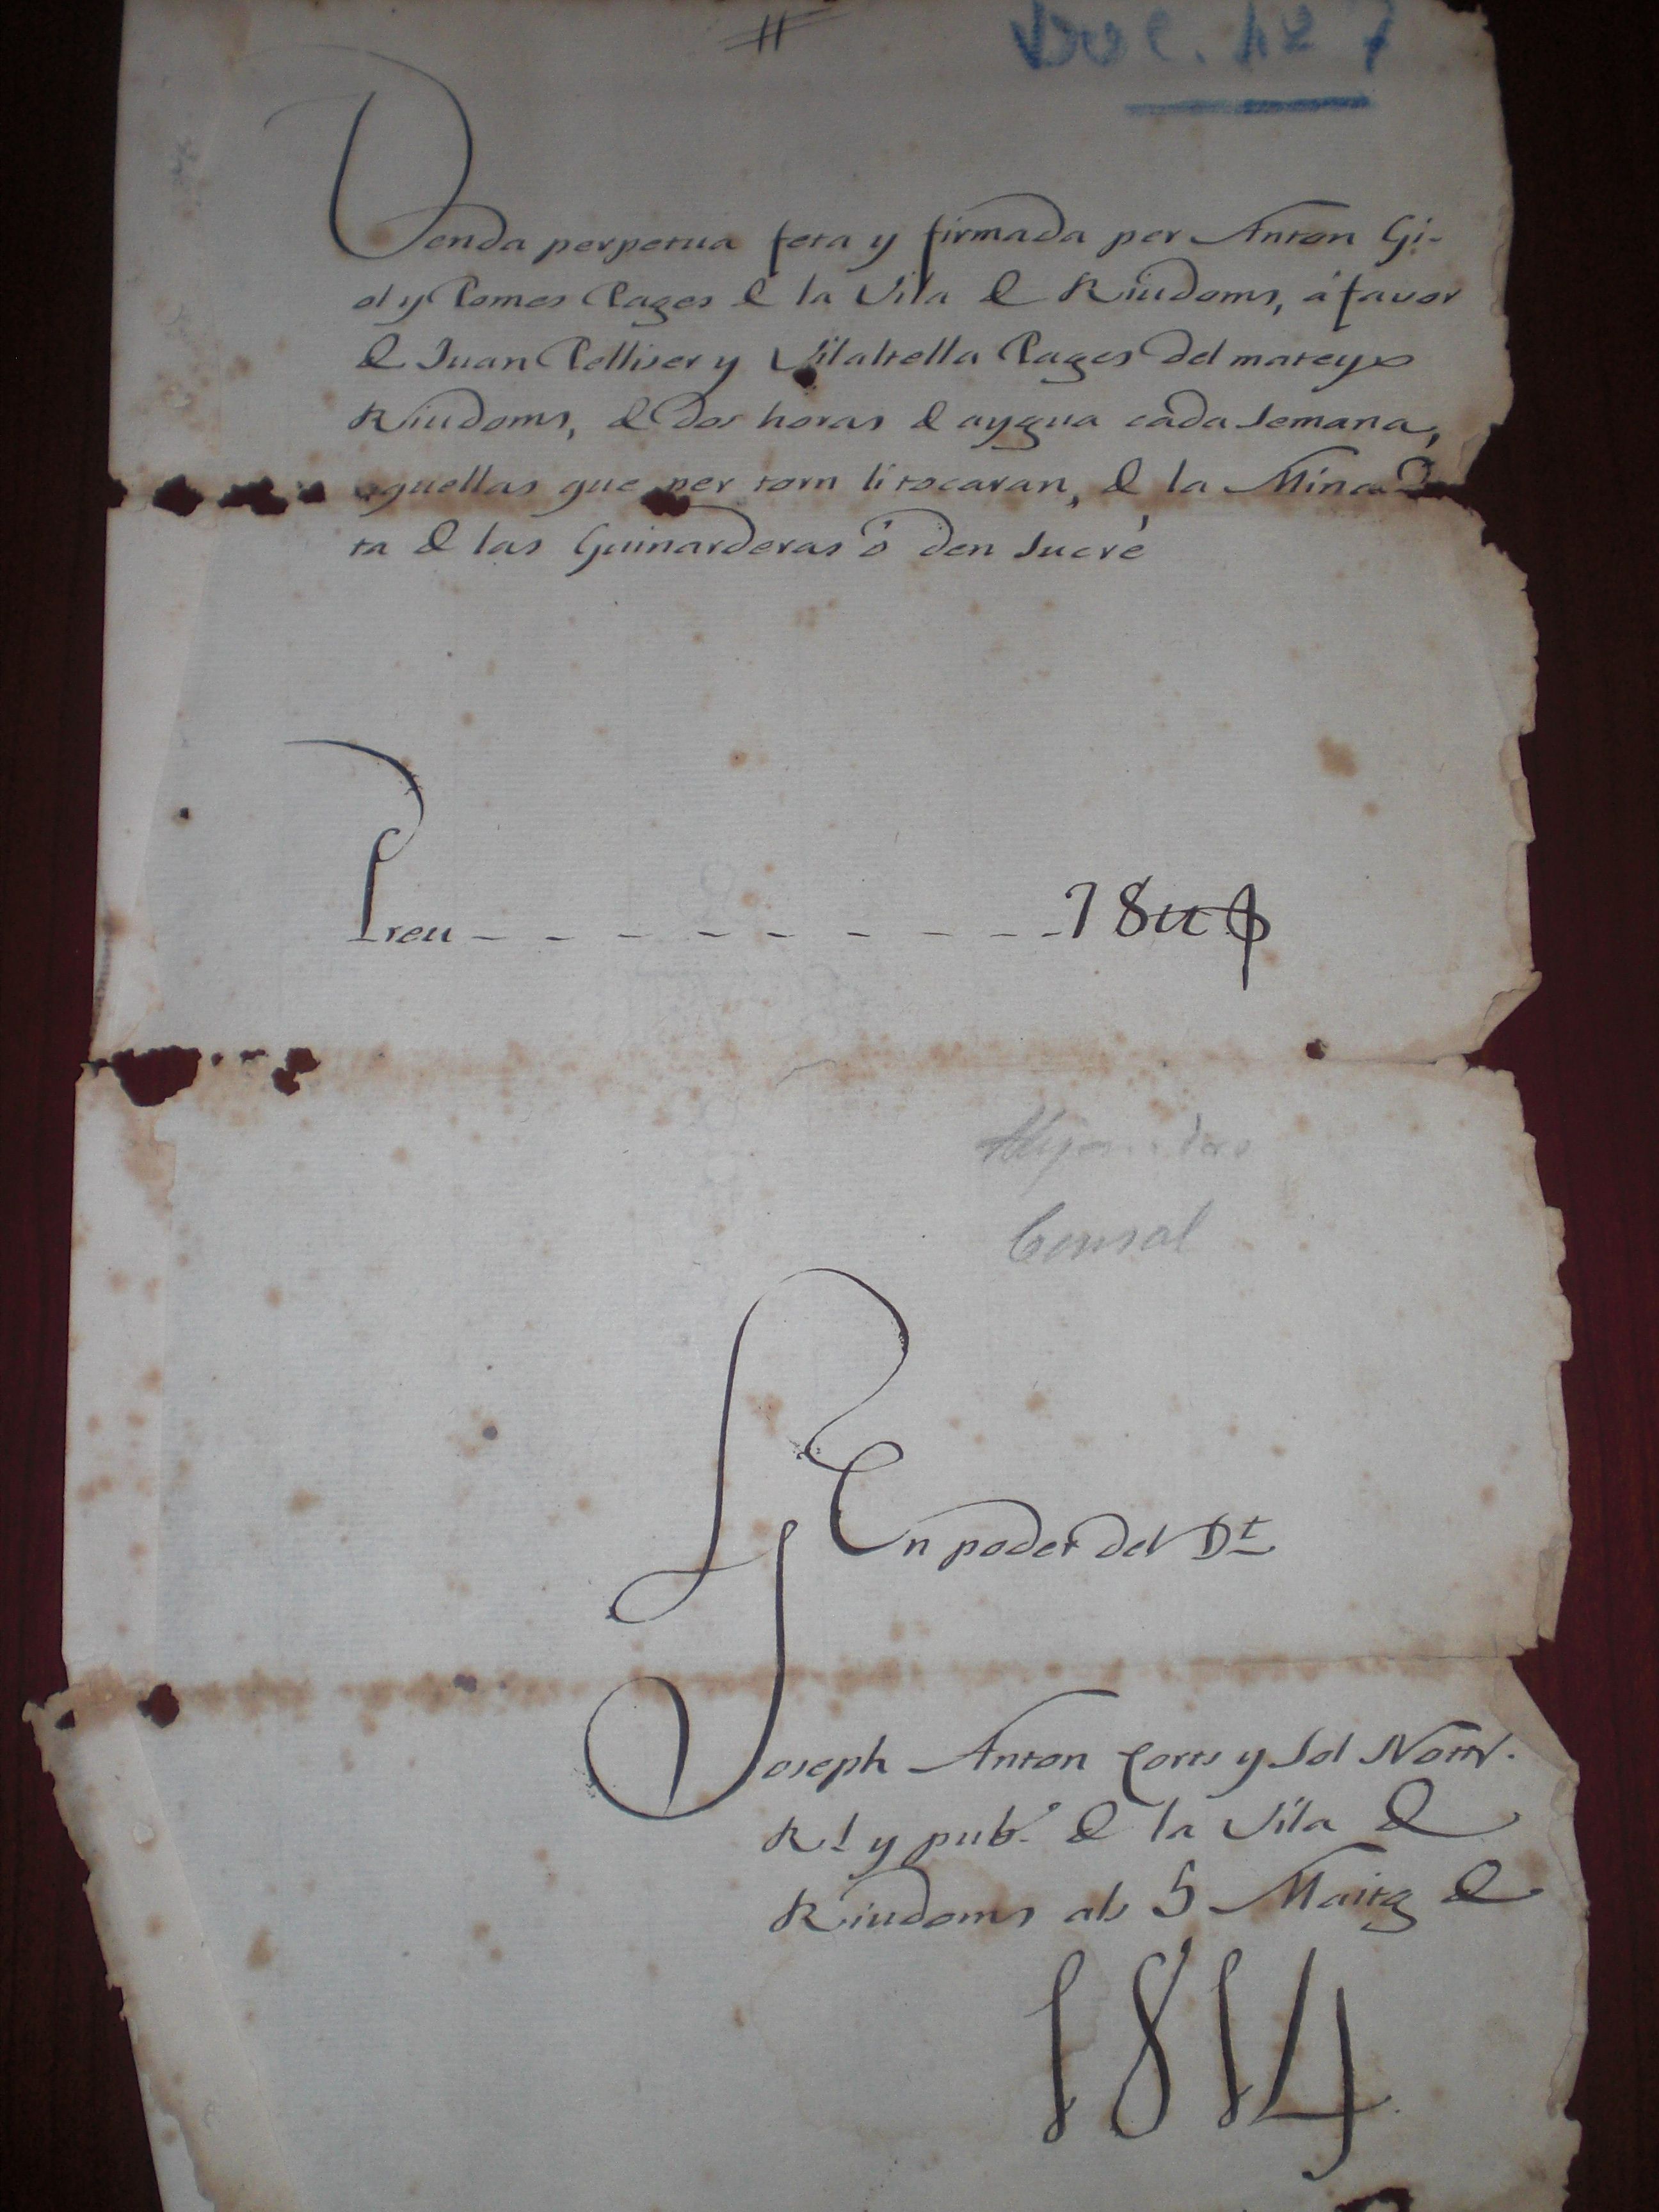 Doc. 127
Venda perpetua feta y firmada per Anton Gi-
ol y Pomes Pages de la Vila de Riudoms, á favor
de Juan Pelliser y Vilaltella Pages del mateyx
Riudoms, de dos horas de aygua cada semana,
aquellas que per torn li tocaran, de la Mina
ta de las Guinarderas ó den Sucré
Preu - - - - - - - - - 18 ₶ ₰
Consal
En poder del Dt
Joseph Anton Corts y Sol Nottr.
Rl y pubch de la Vila de
Riudoms als 5 Maitg de
1814